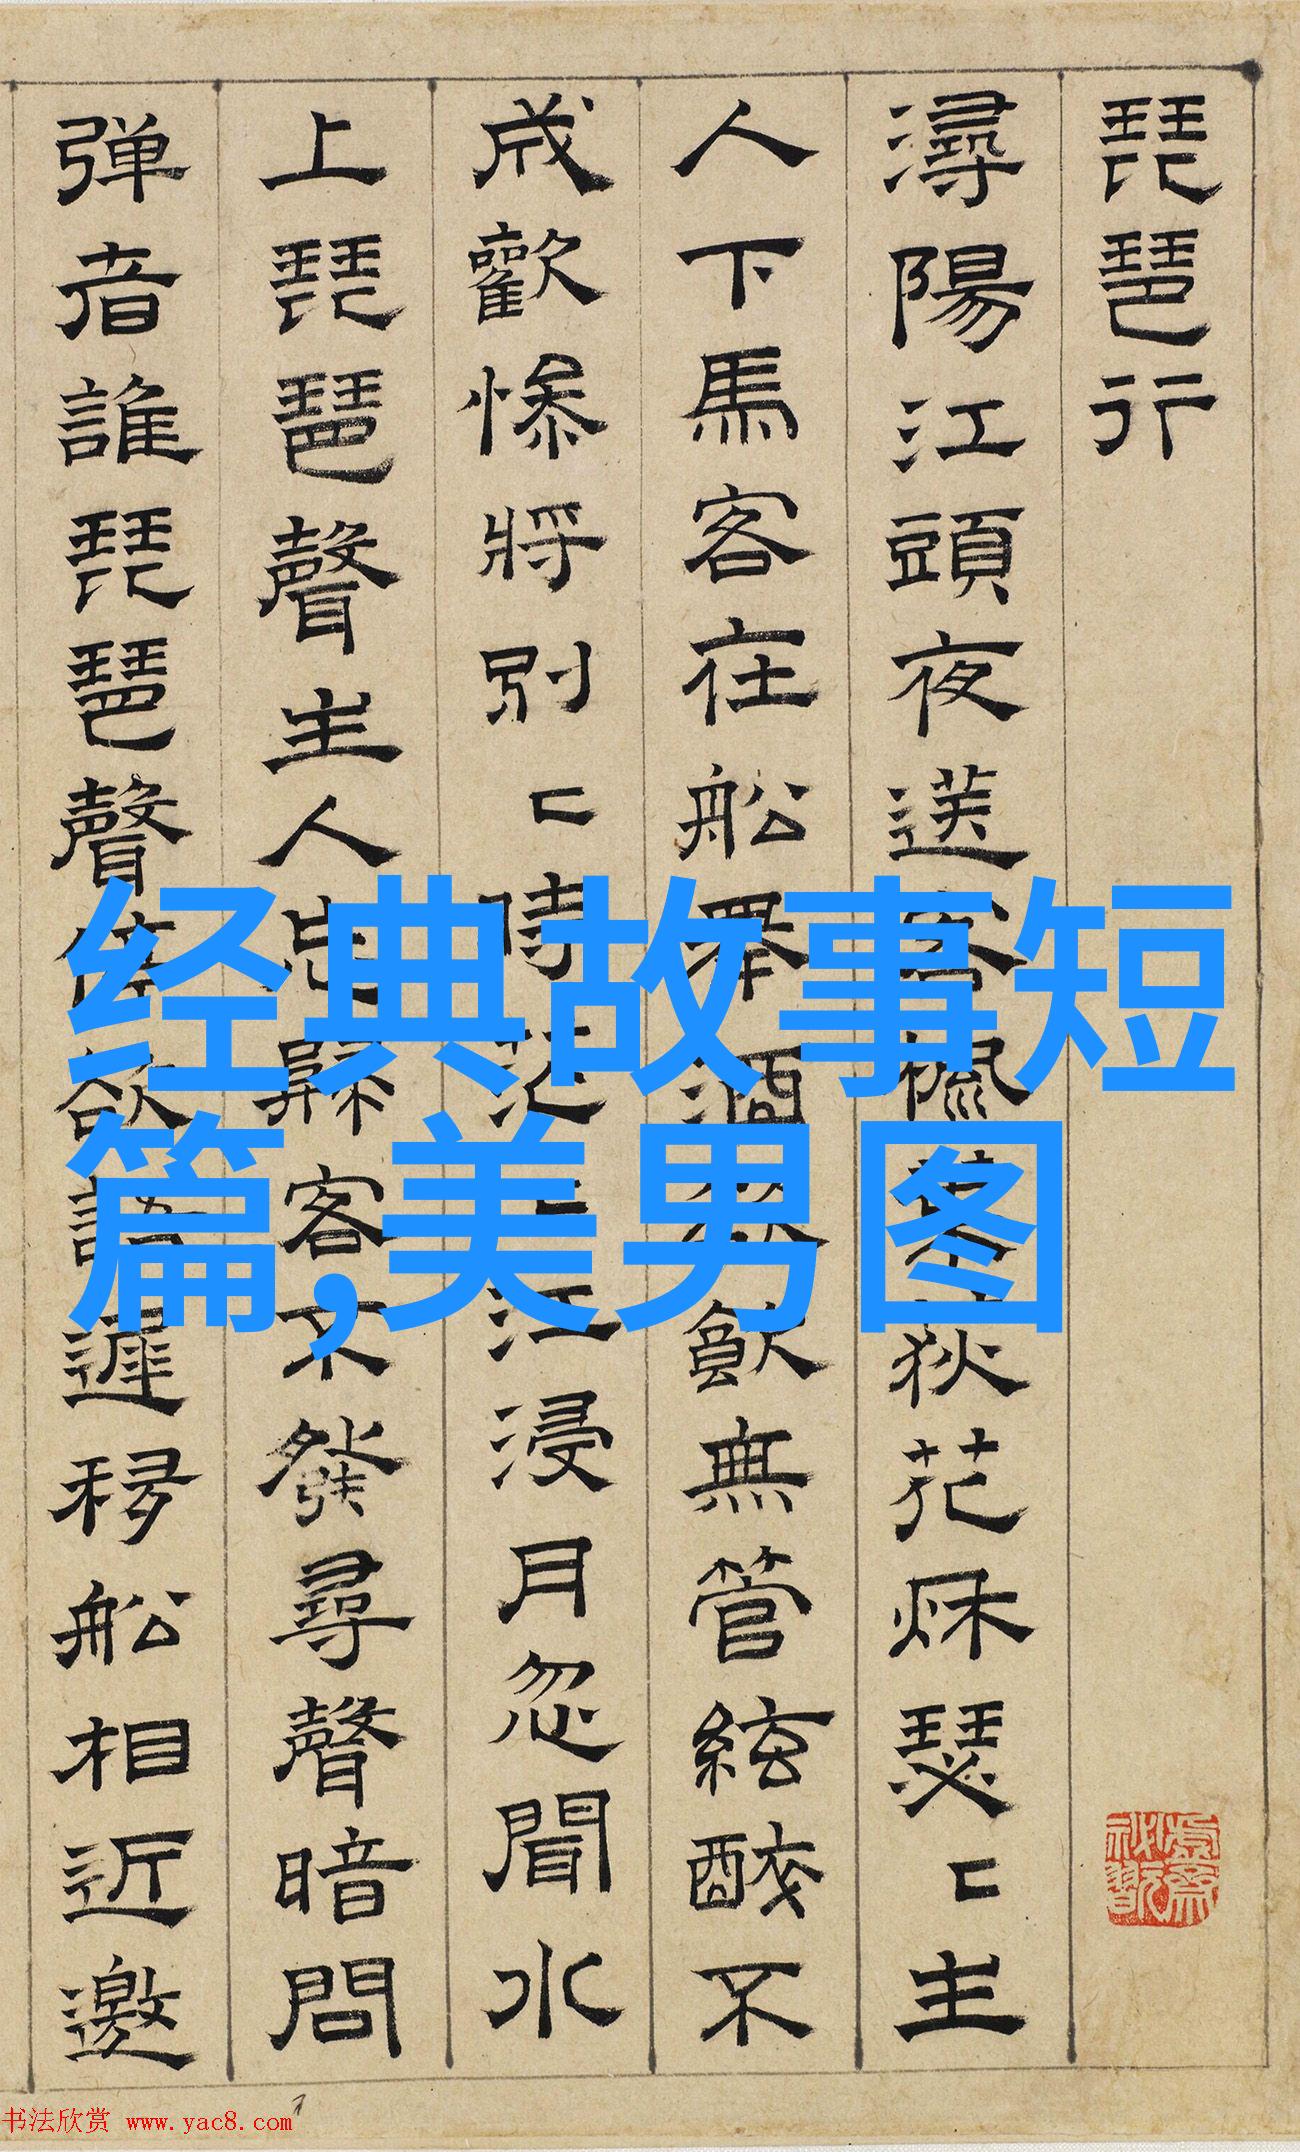 琵琶行
潯陽江頭夜送客楓葉荻花秋瑟〻主
人下馬客在船舉酒欲飲無管絃醉不
成歡慘將別〻時茫〻江浸月忽聞水
上琵琶聲主人忘歸客不發尋聲暗問
弹者誰琵琶聲停欲語遲移船相近邀
经典故事短
篇,美男图
书法欣赏 www.yac8.com